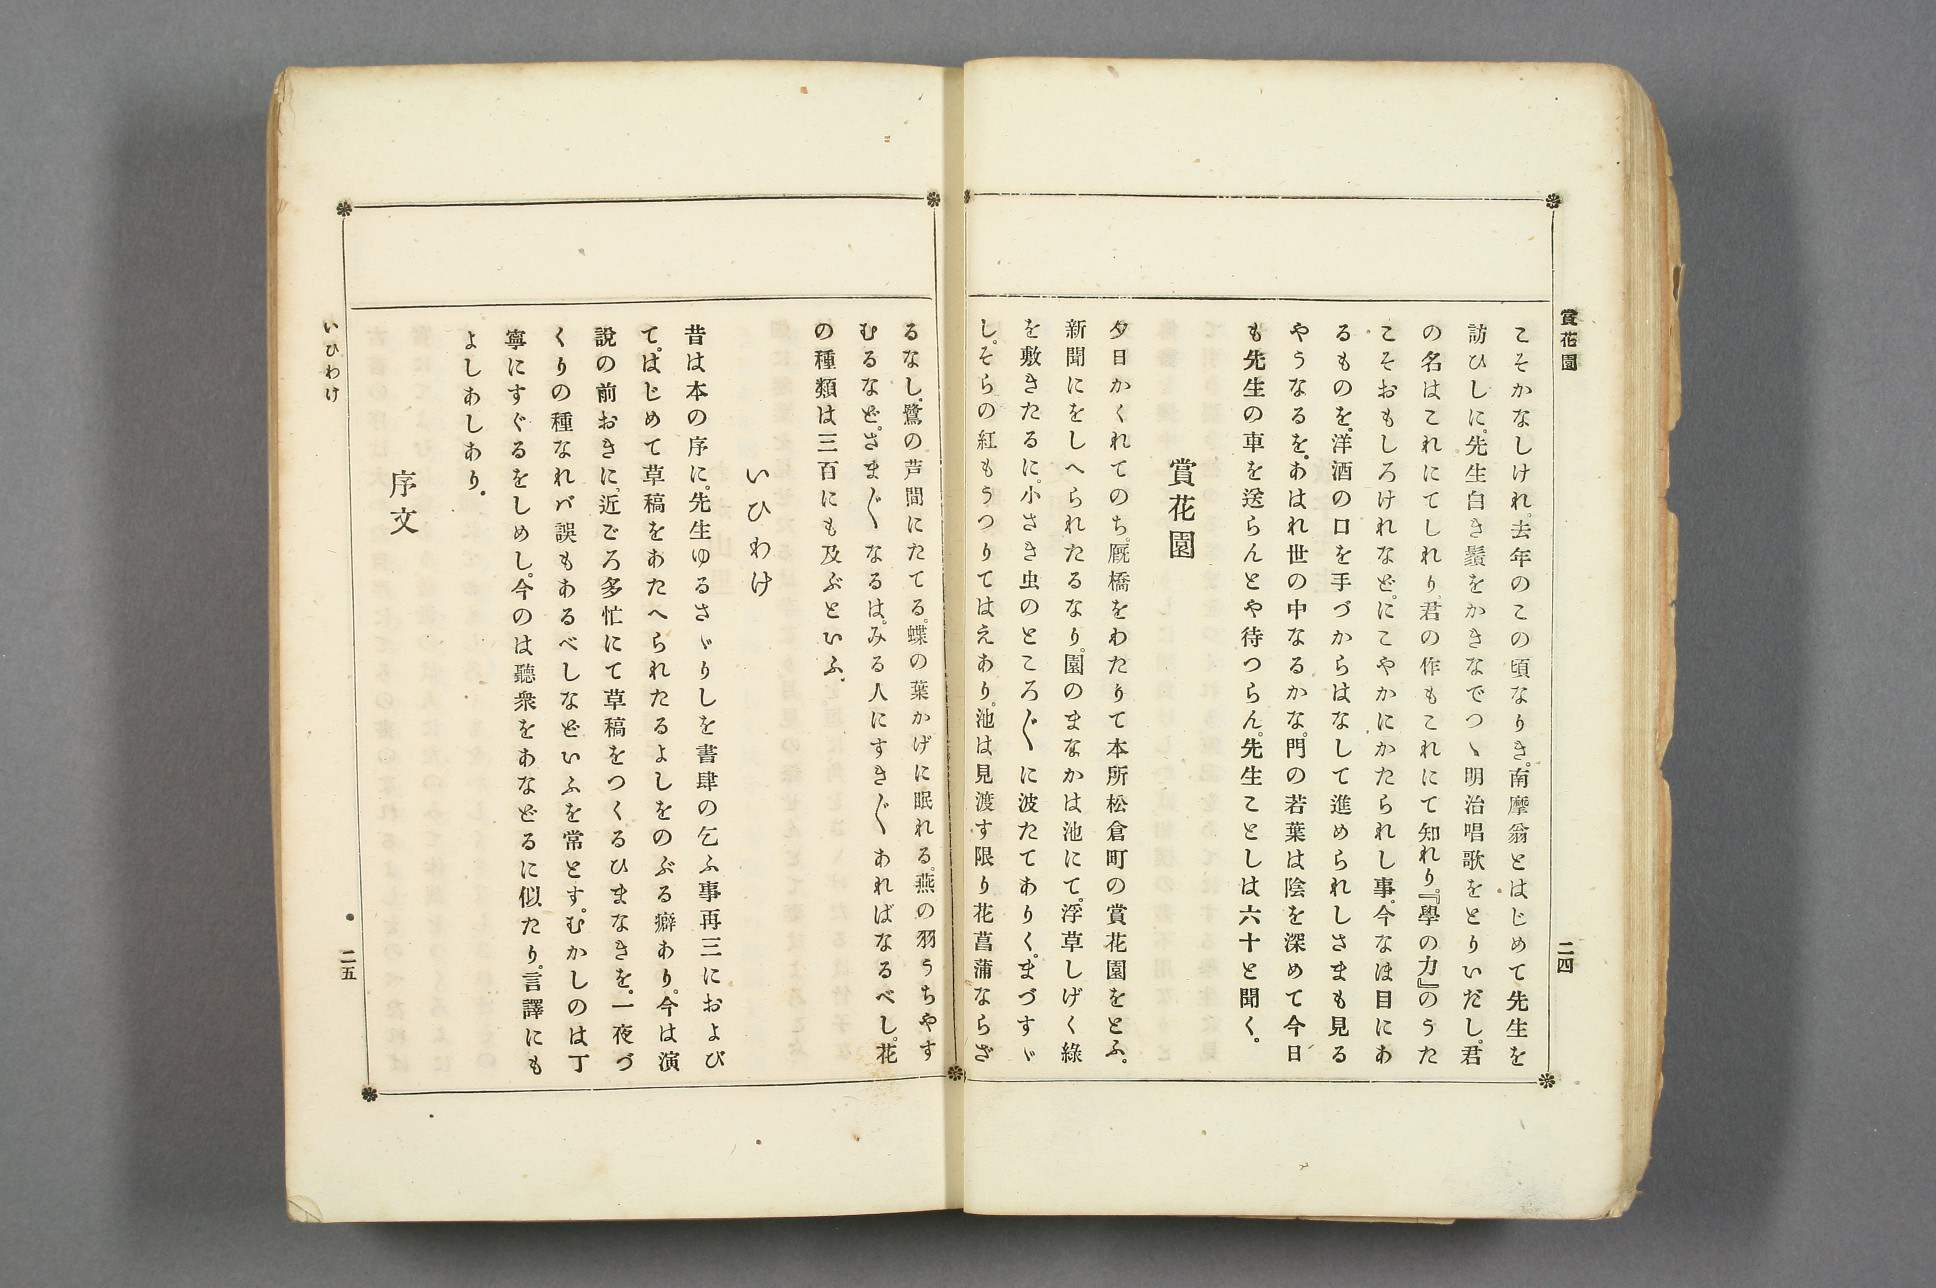 賞花園
二四
こそかなしけれ。去年のこの頃なりき。南摩翁とはじめて先生を
訪ひしに。先生白き鬚をかきなでつゝ明治唱歌をとりいだし。君
の名はこれにてしれり。君の作もこれにて知れり。『學の力』のうた
こそおもしろけれなど。にこやかにかたられし事。今なほ目にあ
るものを。洋酒の口を手づからはなして進められしさまも見る
やうなるを。あはれ世の中なるかな。門の若葉は陰を深めて今日
も先生の車を送らんとや待つらん。先生ことしは六十と聞く。
賞花園
夕日かくれてのち。厩橋をわたりて本所松倉町の賞花園をとふ。
新聞にをしへられたるなり。園のまなかは池にて。浮草しげく綠
を敷きたるに。小さき虫のところ〴〵に波たてありく。まづすゞ
し。そらの紅もうつりてはえあり。池は見渡す限り花菖蒲ならざ
るなし。鷺の芦間にたてる。蝶の葉かげに眠れる。燕の羽うちやす
むるなど。さま〴〵なるは。みる人にすき〴〵あればなるべし。花
の種類は三百にも及ぶといふ。
いひわけ
昔は本の序に。先生ゆるさゞりしを書肆の乞ふ事再三におよび
て。はじめて草稿をあたへられたるよしをのぶる癖あり。今は演
說の前おきに。近ごろ多忙にて草稿をつくるひまなきを。一夜づ
くりの種なれバ誤もあるべしなどいふを常とす。むかしのは丁
寧にすぐるをしめし。今のは聽衆をあなどるに似たり。言譯にも
よしあしあり。
序文
いひわけ
二五